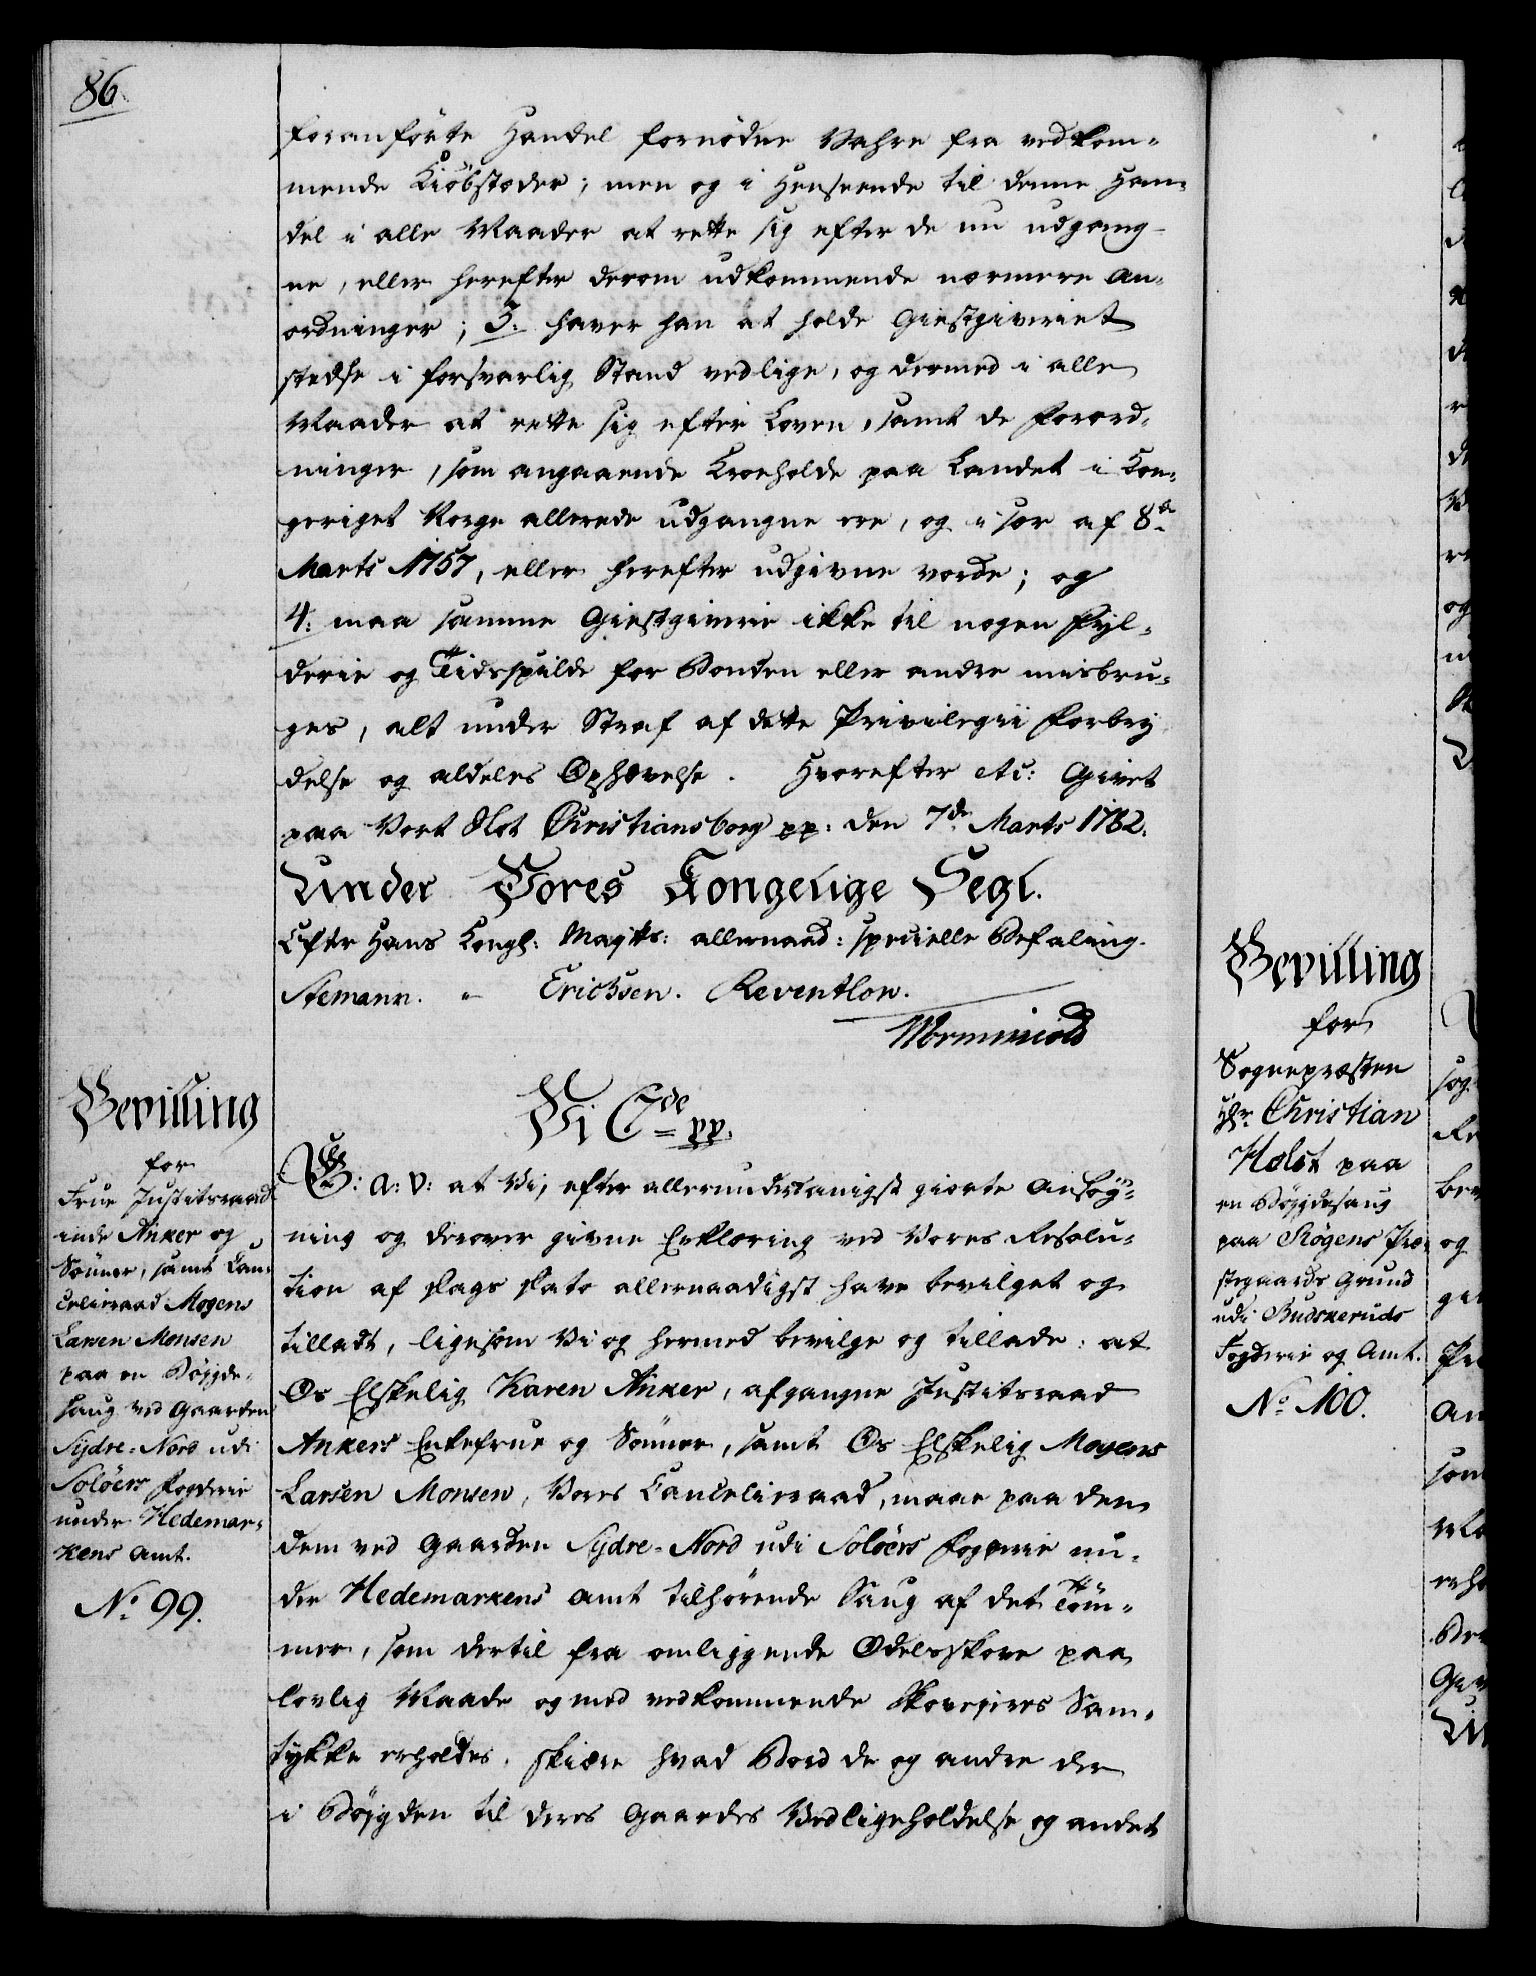 86.
foranførte Handel fornødne Vahre fra vedkom-
mende Kiøbstæder; men og i Henseende til denne Han-
del i alle Maader at rette sig efter de nu udgang-
ne, eller herefter derom udkommende nærmere An-
ordninger; 3. haver han at holde Giestgiveriet
stedse i forsvarlig Stand vedlige, og dermed i alle
Maader at rette sig efter Loven, samt de Forord-
ninger, som angaaende Kroeholde paa Landet i Kon-
geriget Norge allerede udgangne ere, og i sær af 8de
Marts 1757, eller herefter udgivne vorde; og
4. maa samme Giestgiverie ikke til nogen Fyl-
derie og Tidsspilde for Bonden eller andre misbru-
ges, alt under Straf af dette Privilegii Forbry-
delse og aldeles Ophævelse. Hvorefter etc: Givet
paa Vort Slot Christiansborg pp: den 7de Marts 1782.
Under Vores Kongelige Segl.
Efter Hans Kongl: Maytts: allernaad: specielle Befaling.
Stemann. " Erichsen. Reventlow.
Wormskiold
Bevilling
for
Frue Justitsraad-
inde Anker og
Sönner, samt Can-
celieraad Mogens
Larsen Monsen
paa en Bøigde-
saug ved Gaarden
Sydre-Nord udi
Soløers Fogderie
under Hedemar-
kens Amt.
No. 99.
Vi C 7de pp.
G: A: V: at Vi, efter allerunderdanigst giorte Ansøg-
ning og derover givne Erklæring ved Vores Resolu-
tion af Dags Dato allernaadigst have bevilget og
tilladt, ligesom Vi og hermed bevilge og tillade: at
Os Elskelig Karen Anker, afgangne Justitsraad
Ankers Enkefrue og Sönner, samt Os Elskelig Mogens
Larsen Monsen, Vores Cancelieraad, maae paa den
dem ved Gaarden Sydre-Nord udi Soløers Fogderie un-
der Hedemarkens Amt tilhørende Saug af det Töm-
mer, som dertil fra omliggende Odelsskove paa
lovlig Maade og med vedkommende Skovejeres Sam-
tykke erholdes, skiære hvad Bord de og andre der
i Bøjgden til deres Gaardes Vedligeholdelse og andet
Bevilling
for
Sognepræsten
Hr. Christian
Holst paa
en Bøjgdesaug
paa Røgens Præ-
stegaards Grund
udi Buskeruds
Fogderie og Amt.
No. 100.